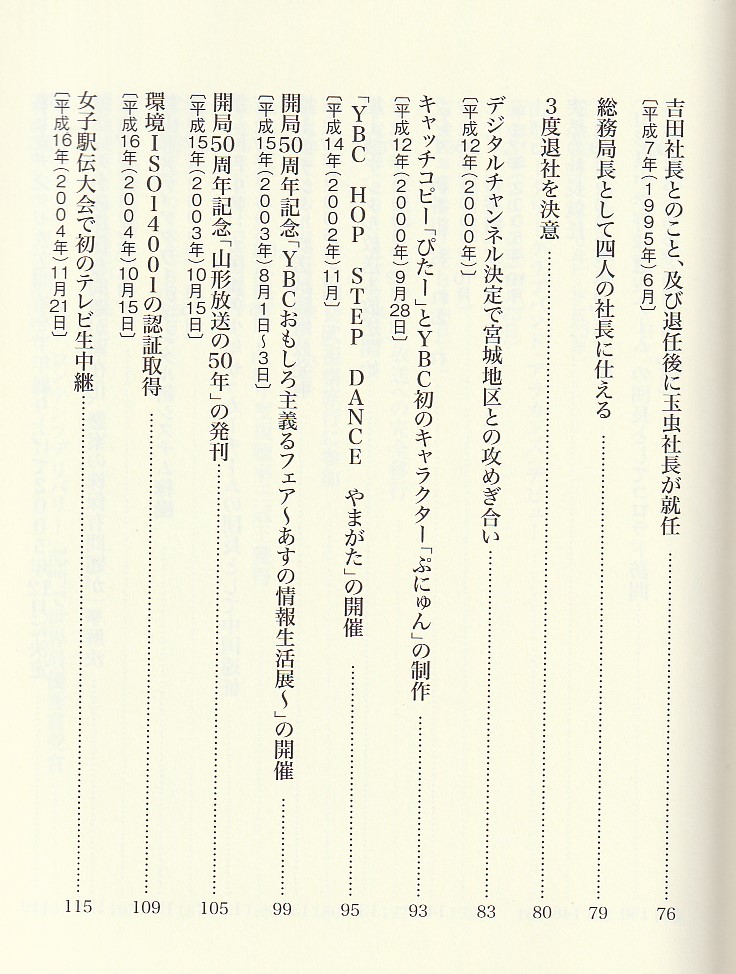 吉田社長とのこと、及び退任後に玉虫社長が就任……76
〔平成7年(1995年)6月〕
総務局長として四人の社長に仕える……79
3度退社を決意……80
デジタルチャンネル決定で宮城地区との攻めぎ合い……83
〔平成12年(2000年)〕
キャッチコピー「ぴたー」とYBC初のキャラクター「ぷにゅん」の制作……93
〔平成12年(2000年)9月28日〕
「YBC HOP STEP DANCE やまがた」の開催……95
〔平成14年(2002年)11月〕
開局50周年記念「YBCおもしろ主義るフェア〜あすの情報生活展〜」の開催……99
〔平成15年(2003年)8月1日〜3日〕
開局50周年記念「山形放送の50年」の発刊……105
〔平成15年(2003年)10月15日〕
環境ISO14001の認証取得……109
〔平成16年(2004年)10月15日〕
女子駅伝大会で初のテレビ生中継……115
〔平成16年(2004年)11月21日〕